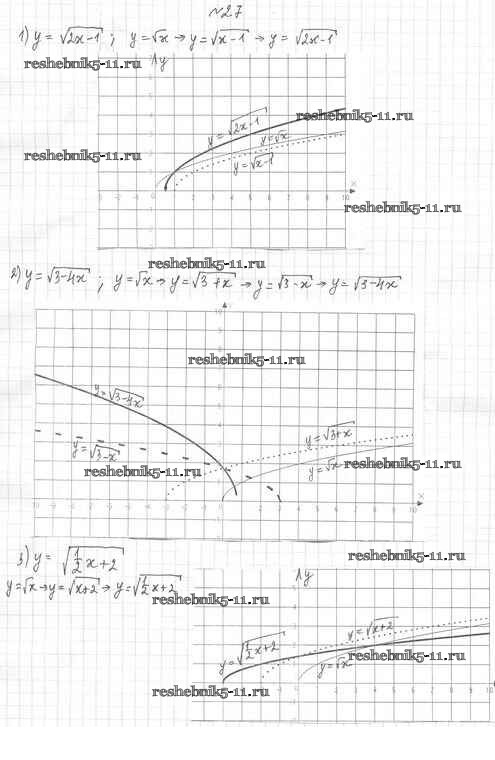 №27
1) y = √2x-1 ; y=√x → y=√x-1 → y = √2x-1
reshebnik5-11.ru
y
reshebnik5-11.ru
y=√2x-1
y=√x
reshebnik5-11.ru
y=√x-1
x
reshebnik5-11.ru
reshebnik5-11.ru
2) y = √3-4x ; y=√x → y=√3+x → y=√3-x → y=√3-4x
reshebnik5-11.ru
y=√3-4x
y=√3+x
y=√3-x
y=√x
reshebnik5-11.ru
reshebnik5-11.ru
x
3) y = √1/2x+2
reshebnik5-11.ru
y=√x → y=√x+2 → y=√1/2x+2
y
reshebnik5-11.ru
y=√x+2
y=√1/2x+2
y=√x
reshebnik5-11.ru
reshebnik5-11.ru